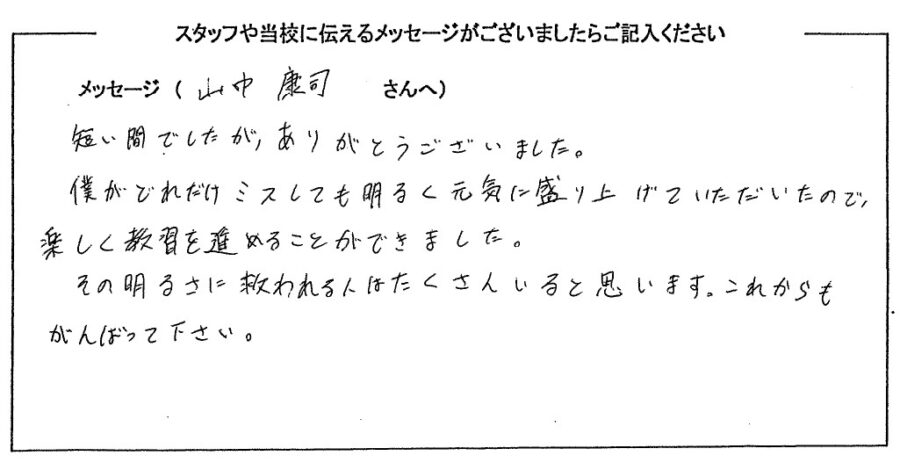 スタッフや当校に伝えるメッセージがございましたらご記入ください
メッセージ ( 山中 康司 さんへ)
短い間でしたが、ありがとうございました。
僕がどれだけミスしても明るく元気に盛り上げていただいたので、
楽しく教習を進めることができました。
その明るさに救われる人はたくさんいると思います。これからも
がんばって下さい。